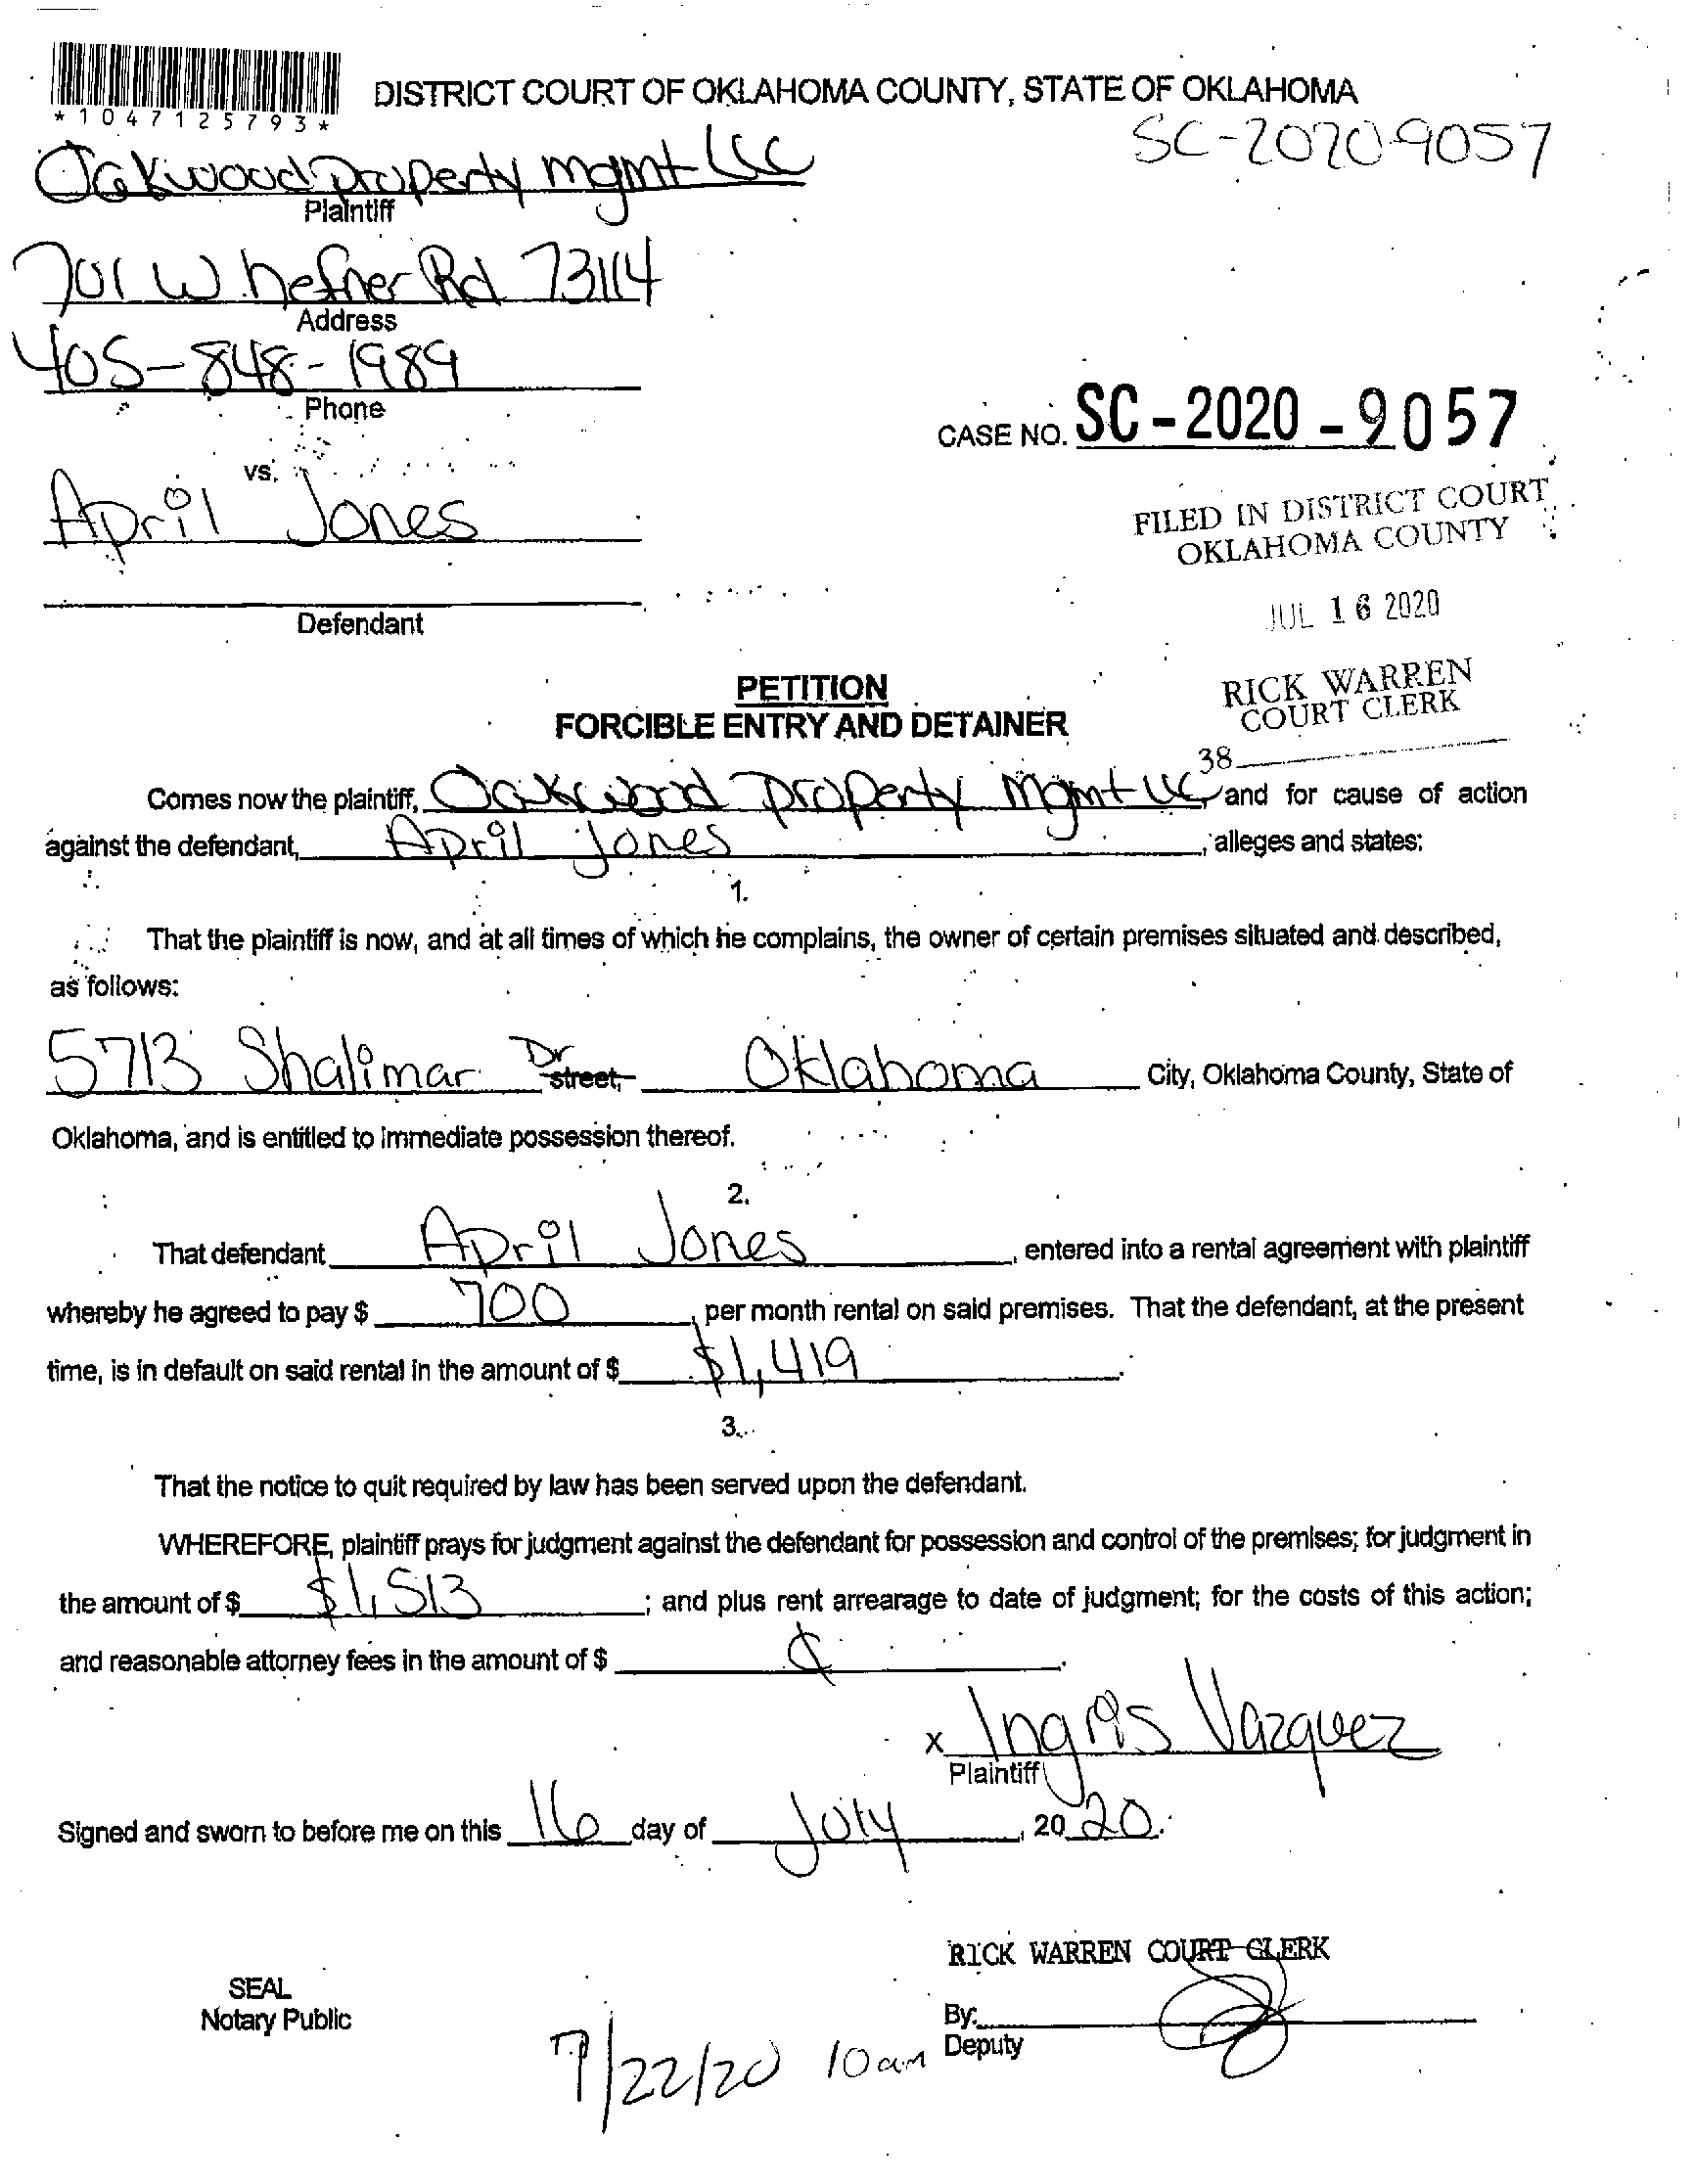 *1047125793*
DISTRICT COURT OF OKLAHOMA COUNTY, STATE OF OKLAHOMA
SC-2020-9057
Oakwood Property mgmt LLC
Plaintiff
701 W. hefner Rd 73114
Address
405-848-1989
Phone
CASE NO. SC-2020-9057
vs.
April Jones
Defendant
FILED IN DISTRICT COURT
OKLAHOMA COUNTY
JUL 16 2020
RICK WARREN
COURT CLERK
38
PETITION
FORCIBLE ENTRY AND DETAINER
Comes now the plaintiff, Oakwood Property Mgmt LLC, and for cause of action
against the defendant, April Jones, alleges and states:
1.
That the plaintiff is now, and at all times of which he complains, the owner of certain premises situated and described,
as follows:
5713 Shalimar Dr street, Oklahoma City, Oklahoma County, State of
Oklahoma, and is entitled to immediate possession thereof.
2.
That defendant April Jones, entered into a rental agreement with plaintiff
whereby he agreed to pay $ 700, per month rental on said premises. That the defendant, at the present
time, is in default on said rental in the amount of $ $1,419.
3.
That the notice to quit required by law has been served upon the defendant.
WHEREFORE, plaintiff prays for judgment against the defendant for possession and control of the premises; for judgment in
the amount of $ $1,513; and plus rent arrearage to date of judgment; for the costs of this action;
and reasonable attorney fees in the amount of $
x Ingris Vazquez
Plaintiff
Signed and sworn to before me on this 16 day of July, 20 20.
RICK WARREN COURT CLERK
SEAL
Notary Public
By:
Deputy
7/22/20 10am